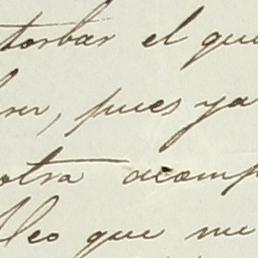 torbar el que
, pues ya
otra acomp
leo que me